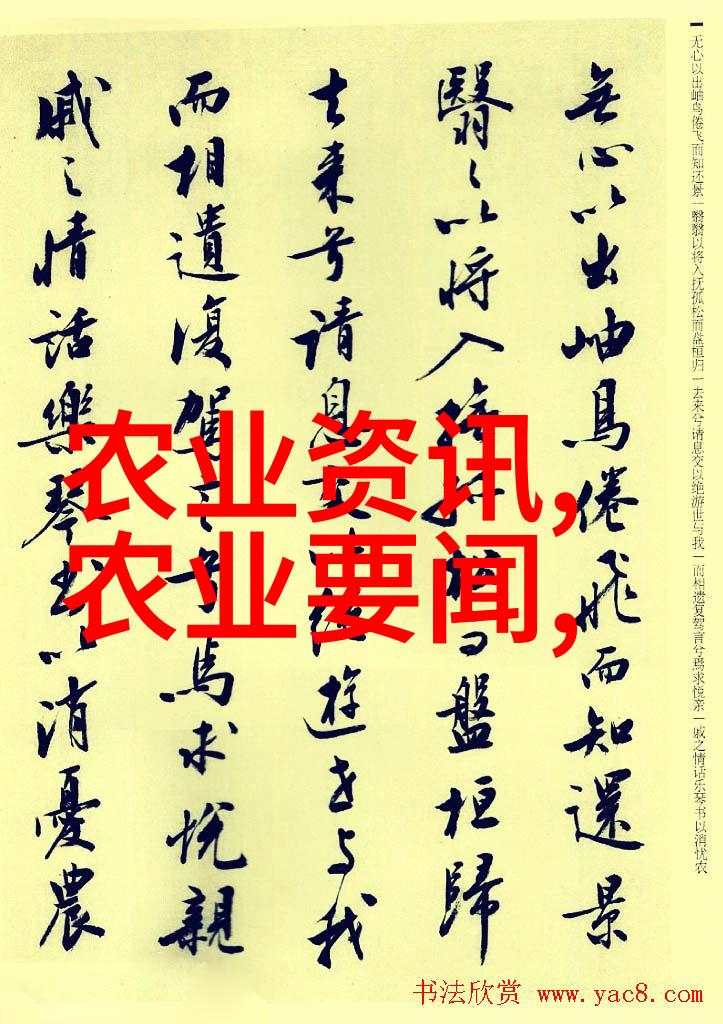 无心以出岫鸟倦飞而知还景一翳翳以将入抚孤松而盘桓归一去来兮请息交以绝游世与我一而相遗复驾言兮焉求悦亲一戚之情话乐琴书以消忧农
無心以出岫鳥倦飛而知還景
翳々以將入撫孤松而盤桓歸
去来兮请息交以絶遊世与我
而相遺復駕言兮焉求悦親
戚之情話樂琴書以消憂農
农业资讯,
农业要闻,
书法欣赏 www.yac8.com